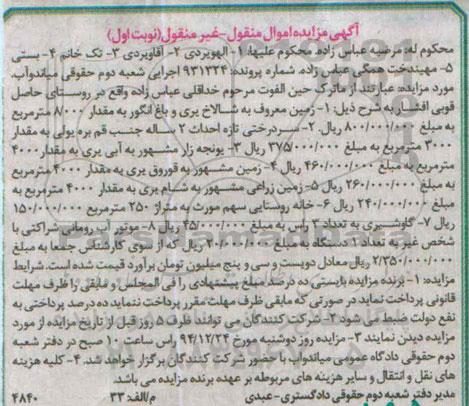 آگهی مزایده اموال منقول-غیر منقول(نوبت اول)
محکوم له: مرضیه عباس زاده. محکوم علیها: ۱- الهویردی ۲- آقاویردی ۳- تک خانم ۴- بستی
۵- مهیندخت همگی عباس زاده. شماره پرونده: ۹۳۱۳۲۴ اجرایی شعبه دوم حقوقی میاندوآب.
مورد مزایده: عبارتند از ماترک حین الفوت مرحوم خداقلی عباس زاده واقع در روستای حاصل
قوبی افشار به شرح ذیل: ۱- زمین معروف به شالاخ یری و باغ انگور به مقدار ۸۰۰۰ مترمربع
به مبلغ ۸۰۰/۰۰۰/۰۰۰ ریال ۲- سردرختی تازه احداث ۲ ساله جنب قم بره یولی به مقدار
۳۰۰۰ مترمربع به مبلغ ۳۷۵/۰۰۰/۰۰۰ ریال ۳- یونجه زار مشهور به آبی یری به مقدار ۴۰۰۰
مترمربع به مبلغ ۴۶۰/۰۰۰/۰۰۰ ریال ۴- زمین مشهور به قوروق یری به مقدار ۴۰۰۰ مترمربع
به مبلغ ۲۶۰/۰۰۰/۰۰۰ ریال ۵- زمین زراعی مشهور به شام یری به مقدار ۴۰۰۰ مترمربع به
مبلغ ۲۴۰/۰۰۰/۰۰۰ ریال ۶- خانه روستایی سهم مورث به متراژ ۲۵۰ مترمربع ۱۵۰/۰۰۰/۰۰۰
ریال ۷- گاوشیری به تعداد ۳ راس به مبلغ ۴۵/۰۰۰/۰۰۰ ریال ۸- موتور آب رومانی شراکتی با
شخص غیر به تعداد ۱ دستگاه به مبلغ ۲۰/۰۰۰/۰۰۰ ریال که از سوی کارشناس جمعا به مبلغ
۲/۳۵۰/۰۰۰/۰۰۰ ریال معادل دویست و سی و پنج میلیون تومان برآورد قیمت شده است. شرایط
مزایده: ۱- برنده مزایده بایستی ده درصد مبلغ پیشنهادی را فی المجلس و مابقی را ظرف مهلت
قانونی پرداخت نماید در صورتی که مابقی ظرف مهلت مقرر پرداخت ننماید ده درصد پرداختی به
نفع دولت ضبط می شود ۲- شرکت کنندگان می توانند ظرف ۵ روز قبل از تاریخ مزایده از مورد
مزایده دیدن نمایند ۳- مزایده روز دوشنبه مورخ ۹۴/۱۲/۲۴ راس ساعت ۱۰ صبح در دفتر شعبه
دوم حقوقی دادگاه عمومی میاندوآب با حضور شرکت کنندگان برگزار خواهد شد. ۴- کلیه هزینه
های نقل و انتقال و سایر هزینه های مربوطه بر عهده برنده مزایده می باشد.
مدیر دفتر شعبه دوم حقوقی دادگستری- عبدی م/الف: ۳۳ ۴۸۴۰